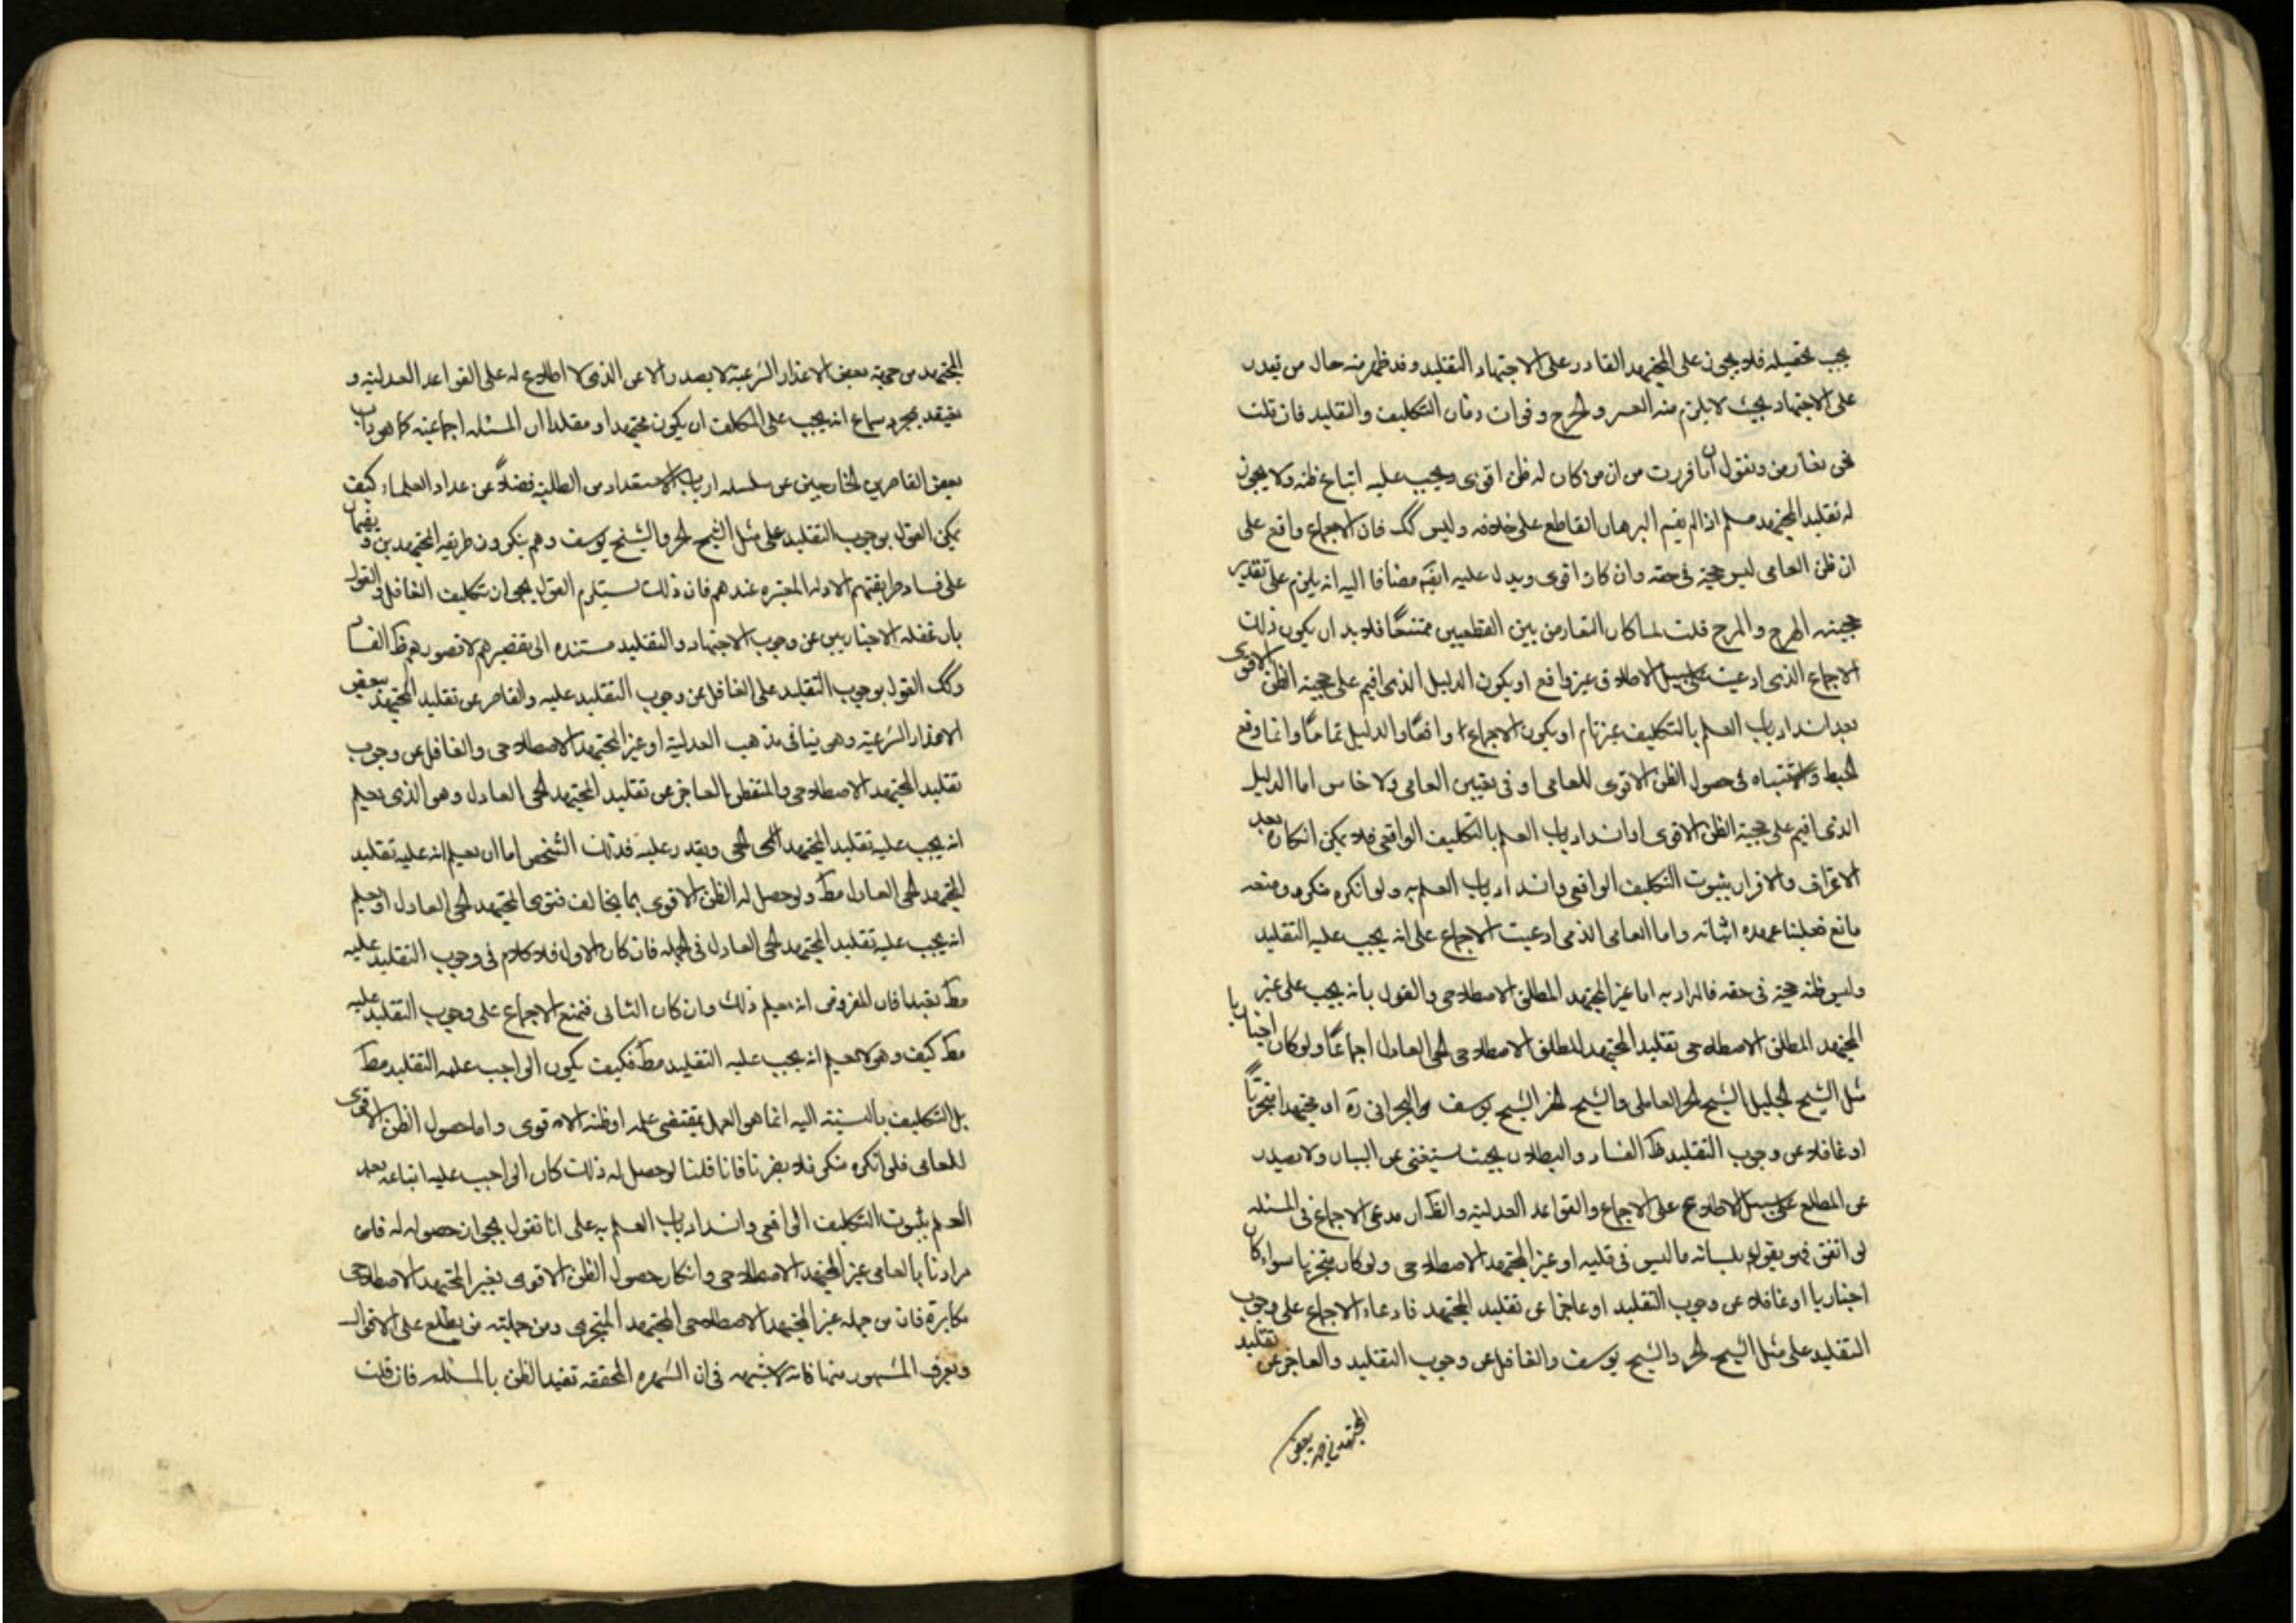 يجب تحصيله فلا يجوز على المجتهد القادر على الاجتهاد التقليد وقد ظهر منه حال من يقدر
على الاجتهاد بحيث لا يلزم منه العسر والحرج وفوات زمان التكليف والتقليد فان قلت
نحن نعارض ونقول ان ما قررت من ان من كان له ظن اقوى ويجب عليه اتباع ظنه ولا يجوز
له تقليد المجتهد مسلم اذا لم يقم البرهان القاطع على خلافه وليس كك فان الاجماع واقع على
ان ظن العامى ليس حجية فى حقه وان كان اقوى ويدل عليه ايضه مضافا اليه انه يلزم على تقدير
حجيته الهرج والمرج قلت لما كان التعارض بين القطعيين ممتنعًا فلا بد ان يكون ذلك
الاجماع الذى ادعيت على سبيل الاطلاق غير واقع او يكون الدليل الذى اقيم على حجية الظن الاقوى
بعد انسداد باب العلم بالتكليف غير تام او يكون الاجماع واقعًا والدليل تمامًا وانما وقع
الخبط والاشتباه فى حصول الظن الاقوى للعامى او فى تعيين العامى ولا خامس اما الدليل
الذى اقيم على حجية الظن الاقوى اوانسداد باب العلم بالتكليف الواقعى فلا يمكن انكاره بعد
الاعتراف والاقرار بثبوت التكليف الواقعى وانسداد باب العلم به ولو انكره منكر ومنعه
مانع فعلينا عهده اثباته واما العامى الذى ادعيت الاجماع على انه يجب عليه التقليد
وليس ظنه حجية فى حقه فالمراد به اما غير المجتهد المطلق الاصطلاحى والقول بانه يجب على غير
المجتهد المطلق الاصطلاحى تقليد المجتهد المطلق الاصطلاحى الحى العادل اجماعًا ولو كان اخباريا
مثل الشيخ الجليل الشيخ الحر العاملى والشيخ الشيخ يوسف البحرانى ره او مجتهدا متجزيًا
او غافلا عن وجوب التقليد ظ الفساد والبطلان بحيث يستغنى عن البيان ولا يصدر
عن المطلع على سبيل الاطلاع على الاجماع والقواعد العدلية والظ ان مدعى الاجماع فى المسئله
لو اتفق فهو يقول بلسانه ما ليس فى قلبه او غير المجتهد الاصطلاحى ولو كان متجزيا سواء كان
اخباريا او غافلا عن وجوب التقليد او عاجزا عن تقليد المجتهد فادعاء الاجماع على وجوب
التقليد على مثل الشيخ الحر والشيخ يوسف والغافل عن وجوب التقليد والعاجز عن تقليد
المجتهد من جهة بعض
المجتهد من جهة بعض الاعذار الشرعية لا يصدر الا عن الذى لا اطلاع له على القواعد العدلية و
يعتقد بمجرد سماع انه يجب على المكلف ان يكون مجتهدا او مقلدا ان المسئله اجماعية كما هو داب
بعض القاصرين الخارجين عن سلسله ارباب الاستعداد من الطلبة فضلًا عن عداد العلماء كيف
يمكن القول بوجوب التقليد على مثل الشيخ الحر والشيخ يوسف وهم ينكرون طريقه المجتهدين و يقيمان
على فساد طريقتهم الادله المعتبره عندهم فان ذلك يستلزم القول بجواز تكليف الغافل والقول
بان غفله الاخباريين عن وجوب الاجتهاد والتقليد مستنده الى تقصيرهم لا قصورهم ظ الفساد
وكك القول بوجوب التقليد على الغافل عن وجوب التقليد عليه والقاصر عن تقليد المجتهد بعض
الاعذار الشرعية وهى ينافى مذهب العدلية او غير المجتهد الاصطلاحى والغافل عن وجوب
تقليد المجتهد الاصطلاحى والمتفطن العاجز عن تقليد المجتهد الحى العادل وهو الذى يعلم
انه يجب عليه تقليد المجتهد الحى ويقدر عليه فذلك الشخص اما ان يعلم انه عليه تقليد
المجتهد الحى العادل مط ولو حصل له الظن الاقوى بما يخالف فتوى المجتهد الحى العادل او يعلم
انه يجب عليه تقليد المجتهد الحى العادل فى الجمله فان كان الاول فلا كلام فى وجوب التقليد عليه
مط تعبدا فان المفروض انه يعلم ذلك وان كان الثانى فنمنع الاجماع على وجوب التقليد عليه
مط كيف وهو لا يعلم انه يجب عليه التقليد مط فكيف يكون الواجب عليه التقليد مط
بل التكليف بالنسبة اليه انما هو العمل بمقتضى علمه او ظنه الاقوى واما حصول الظن الاقوى
للعامى فلو انكره منكر فلا يضرنا فانا قلنا لو حصل له ذلك كان الواجب عليه اتباعه بعد
العلم بثبوت التكليف الواقعى وانسداد باب العلم به على انا نقول يجوز حصوله له فان
مرادنا بالعامى غير المجتهد الاصطلاحى وانكار حصول الظن الاقوى بغير المجتهد الاصطلاحى
مكابرة فان من جمله غير المجتهد الاصطلاحى المجتهد المتجزى ومن جملته من يطلع على الاقوال
ويعرف المشهور منها فانه لا شبهه فى ان الشهره المحققه تفيد الظن بالمسئله فان قلت